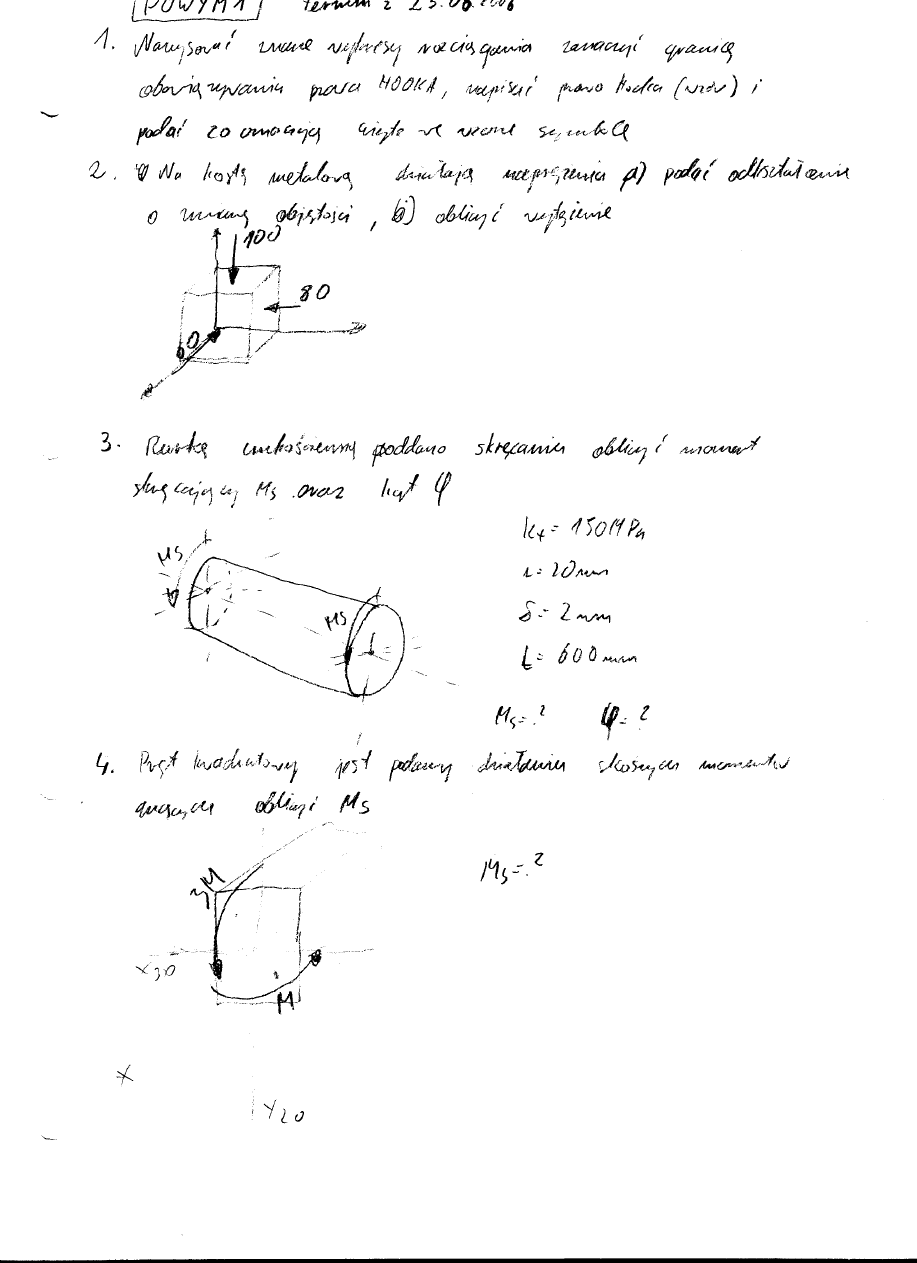 POWYMA termin z 23.06.2006
1. Narysować znane wykresy rozciągania zaznaczyć granicę
obowiązywania prawa HOOKA, napisać prawo Hooka (wzór) i
podać co oznaczają użyte we wzorze symbole
2. Na kostkę metalową działają naprężenia a) podać odkształcenie
o zmianę objętości, b) obliczyć wytężenie
100
80
60
3. Rurkę cienkościenną poddano skręcaniu obliczyć moment
skręcający Ms oraz kąt φ
Ms
Ms
kt = 150MPa
r = 20mm
δ = 2mm
L = 600mm
Ms = ? φ = ?
4. Pręt kwadratowy jest poddany działaniu skośnych momentów
gnących obliczyć Ms
Ms = ?
3M
x30
M
x
Y20